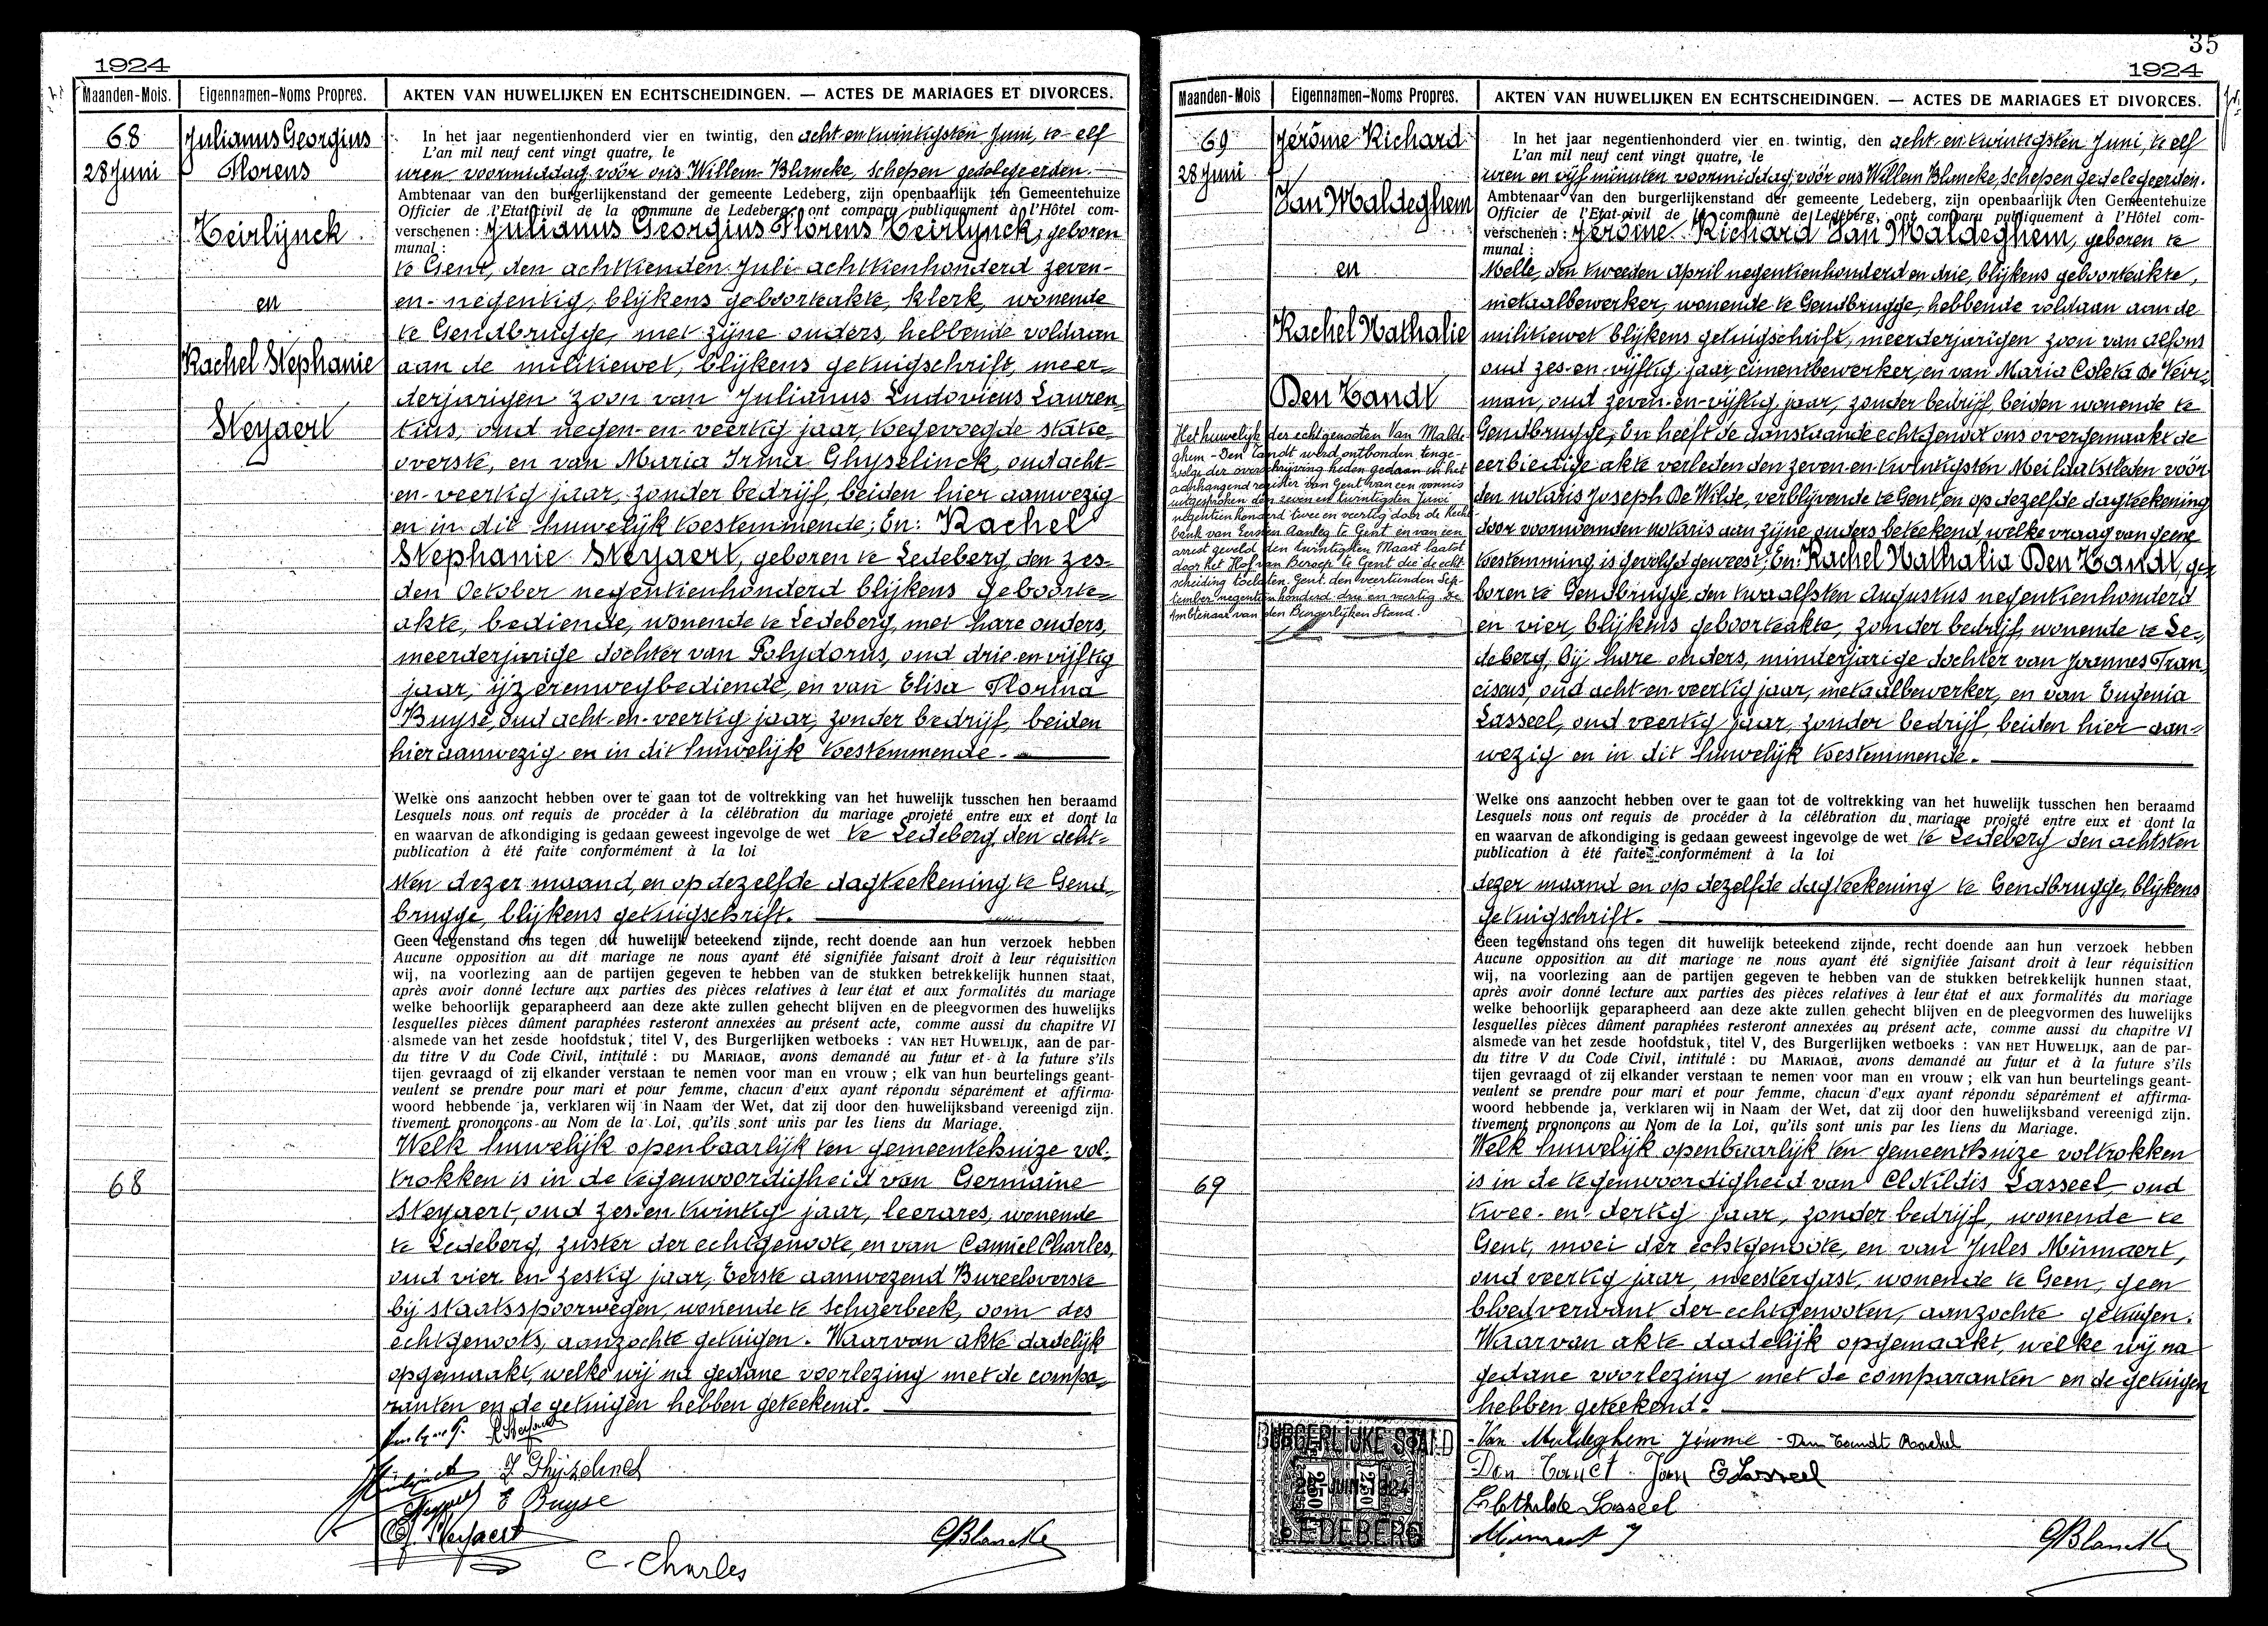 1924
Maanden-Mois.
Eigennamen-Noms Propres.
AKTEN VAN HUWELIJKEN EN ECHTSCHEIDINGEN. — ACTES DE MARIAGES ET DIVORCES.
68
28 Juni
Julianus Georgius
Florens
Teirlijnck
en
Rachel Stephanie
Steyaert
In het jaar negentienhonderd vier en twintig, den acht-en-twintigsten Juni, te elf
L'an mil neuf cent vingt quatre, le
uren voormiddag vóór ons Willem Blancke, schepen gedelegeerden.
Ambtenaar van den burgerlijkenstand der gemeente Ledeberg, zijn openbaarlijk ten Gemeentehuize
Officier de l'Etat-civil de la commune de Ledeberg, ont comparu publiquement à l'Hôtel com-
verschenen : Julianus Georgius Florens Teirlynck, geboren
munal :
te Gent, den achttienden Juli achttienhonderd zeven-
en-negentig, blijkens geboorteakte, klerk, wonende
te Gendbrugge, met zijne ouders, hebbende voldaan
aan de militiewet, blijkens getuigschrift, meer-
derjarigen zoon van Julianus Ludovicus Lauren-
tius, oud negen-en-veertig jaar, toegevoegde statie-
overste, en van Maria Irma Ghyselinck, oud acht-
en-veertig jaar, zonder bedrijf, beiden hier aanwezig
en in dit huwelijk toestemmende; En: Rachel
Stephanie Steyaert, geboren te Ledeberg, den zes-
den October negentienhonderd blijkens geboorte-
akte, bediende, wonende te Ledeberg, met hare ouders,
meerderjarige dochter van Polydorus, oud drie-en-vijftig
jaar, ijzerenwegbediende, en van Elisa Florina
Buyse, oud acht-en-veertig jaar, zonder bedrijf, beiden
hier aanwezig en in dit huwelijk toestemmende.
Welke ons aanzocht hebben over te gaan tot de voltrekking van het huwelijk tusschen hen beraamd
Lesquels nous ont requis de procéder à la célébration du mariage projeté entre eux et dont la
en waarvan de afkondiging is gedaan geweest ingevolge de wet te Ledeberg, den acht-
publication à été faite conformément à la loi
sten dezer maand, en op dezelfde dagteekening te Gend-
brugge, blijkens getuigschrift.
Geen tegenstand ons tegen dit huwelijk beteekend zijnde, recht doende aan hun verzoek hebben
Aucune opposition au dit mariage ne nous ayant été signifiée faisant droit à leur réquisition
wij, na voorlezing aan de partijen gegeven te hebben van de stukken betrekkelijk hunnen staat,
après avoir donné lecture aux parties des pièces relatives à leur état et aux formalités du mariage
welke behoorlijk geparapheerd aan deze akte zullen gehecht blijven en de pleegvormen des huwelijks
lesquelles pièces dûment paraphées resteront annexées au présent acte, comme aussi du chapitre VI
alsmede van het zesde hoofdstuk, titel V, des Burgerlijken wetboeks : VAN HET HUWELIJK, aan de par-
du titre V du Code Civil, intitulé : DU MARIAGE, avons demandé au futur et à la future s'ils
tijen gevraagd of zij elkander verstaan te nemen voor man en vrouw ; elk van hun beurtelings geant-
veulent se prendre pour mari et pour femme, chacun d'eux ayant répondu séparément et affirma-
woord hebbende ja, verklaren wij in Naam der Wet, dat zij door den huwelijksband vereenigd zijn.
tivement prononçons au Nom de la Loi, qu'ils sont unis par les liens du Mariage.
Welk huwelijk openbaarlijk ten gemeentehuize vol-
68
trokken is in de tegenwoordigheid van Germaine
Steyaert, oud zes-en-twintig jaar, leerares, wonende
te Ledeberg, zuster der echtgenoote, en van Camiel Charles,
oud vier-en-zestig jaar, Eerste aanwezend Bureeloverste
bij staatsspoorwegen, wonende te Schaerbeek, oom des
echtgenoots, aanzochte getuigen. Waarvan akte dadelijk
opgemaakt, welke wij na gedane voorlezing met de compa-
ranten en de getuigen hebben geteekend.
R Steyaert
E Buyse
G. Steyaert
C. Charles
GBlancke
35
1924
Maanden-Mois
Eigennamen-Noms Propres.
AKTEN VAN HUWELIJKEN EN ECHTSCHEIDINGEN. — ACTES DE MARIAGES ET DIVORCES.
69
28 Juni
Jérôme Richard
Van Maldeghem
en
Rachel Nathalie
Den Tandt
Het huwelijk der echtgenooten Van Malde-
ghem - Den Tandt werd ontbonden tenge-
volge der overschrijving heden gedaan in het
aanhangend register van Gent van een vonnis
uitgesproken den zeven en twintigsten Juni
negentienhonderd twee en veertig door de Recht-
bank van Eersten Aanleg te Gent en van een
arrest geveld den twintigsten Maart laatst
door het Hof van Beroep te Gent die de echt-
scheiding toelaten. Gent, den veertienden Sep-
tember negentienhonderd drie en veertig. De
Ambtenaar van den Burgerlijken Stand.
In het jaar negentienhonderd vier en twintig, den acht-en-twintigsten Juni, te elf
L'an mil neuf cent vingt quatre, le
uren en vijf minuten voormiddag, vóór ons Willem Blancke, schepen gedelegeerden.
Ambtenaar van den burgerlijkenstand der gemeente Ledeberg, zijn openbaarlijk ten Gemeentehuize
Officier de l'Etat-civil de la commune de Ledeberg, ont comparu publiquement à l'Hôtel com-
verschenen : Jérôme Richard Van Maldeghem, geboren te
munal :
Melle, den tweeden April negentienhonderd en drie, blijkens geboorteakte,
metaalbewerker, wonende te Gendbrugge, hebbende voldaan aan de
militiewet blijkens getuigschrift, meerderjarigen zoon van Alfons
oud zes-en-vijftig jaar, cimentbewerker, en van Maria Coleta De Veir-
man, oud zeven-en-vijftig jaar, zonder bedrijf, beiden wonende te
Gendbrugge; En heeft de aanstaande echtgenoot ons overgemaakt de
eerbiedige akte verleden den zeven-en-twintigsten Mei laatstleden vóór
den notaris Joseph De Wilde, verblijvende te Gent, en op dezelfde dagteekening
door voornoemden notaris aan zijne ouders beteekend welke vraag van geene
toestemming is gevolgd geweest; En: Rachel Nathalia Den Tandt, ge-
boren te Gendbrugge, den twaalfsten Augustus negentienhonderd
en vier, blijkens geboorteakte, zonder bedrijf, wonende te Le-
deberg, bij hare ouders, minderjarige dochter van Joannes Fran-
ciscus, oud acht-en-veertig jaar, metaalbewerker, en van Eugenia
Lasseel, oud veertig jaar, zonder bedrijf, beiden hier aan-
wezig en in dit huwelijk toestemmende.
Welke ons aanzocht hebben over te gaan tot de voltrekking van het huwelijk tusschen hen beraamd
Lesquels nous ont requis de procéder à la célébration du mariage projeté entre eux et dont la
en waarvan de afkondiging is gedaan geweest ingevolge de wet te Ledeberg den achtsten
publication à été faite conformément à la loi
dezer maand en op dezelfde dagteekening te Gendbrugge, blijkens
getuigschrift.
Geen tegenstand ons tegen dit huwelijk beteekend zijnde, recht doende aan hun verzoek hebben
Aucune opposition au dit mariage ne nous ayant été signifiée faisant droit à leur réquisition
wij, na voorlezing aan de partijen gegeven te hebben van de stukken betrekkelijk hunnen staat,
après avoir donné lecture aux parties des pièces relatives à leur état et aux formalités du mariage
welke behoorlijk geparapheerd aan deze akte zullen gehecht blijven en de pleegvormen des huwelijks
lesquelles pièces dûment paraphées resteront annexées au présent acte, comme aussi du chapitre VI
alsmede van het zesde hoofdstuk, titel V, des Burgerlijken wetboeks : VAN HET HUWELIJK, aan de par-
du titre V du Code Civil, intitulé : DU MARIAGE, avons demandé au futur et à la future s'ils
tijen gevraagd of zij elkander verstaan te nemen voor man en vrouw ; elk van hun beurtelings geant-
veulent se prendre pour mari et pour femme, chacun d'eux ayant répondu séparément et affirma-
woord hebbende ja, verklaren wij in Naam der Wet, dat zij door den huwelijksband vereenigd zijn.
tivement prononçons au Nom de la Loi, qu'ils sont unis par les liens du Mariage.
Welk huwelijk openbaarlijk ten gemeenthuize voltrokken
69
is in de tegenwoordigheid van Clotildis Lasseel, oud
twee-en-dertig jaar, zonder bedrijf, wonende te
Gent, moei der echtgenoote, en van Jules Minnaert,
oud veertig jaar, meestergast, wonende te Geen, geen
bloedverwant der echtgenooten, aanzochte getuigen.
Waarvan akte dadelijk opgemaakt, welke wij na
gedane voorlezing met de comparanten en de getuigen
hebben geteekend.
BURGERLIJKE STAND
LEDEBERG
Van Maldeghem Jérome - Den Tandt Rachel
Den Tandt Jan E Lasseel
Clothilde Lasseel
Minnaert J
GBlancke